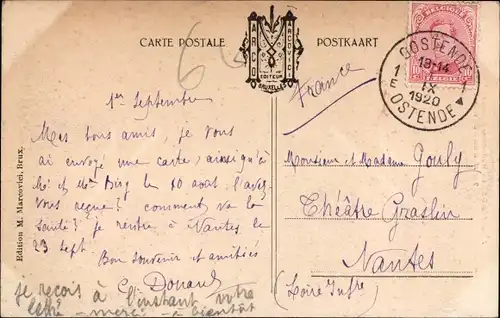 CARTE POSTALE
POSTKAART
MARC MARCOVICI
EDITEUR
BRUXELLES
BELGIQUE
10 10
OOSTENDE
1 18-14 1
E IX
1920
OSTENDE
6
France
1er Septembre
Mes bons amis, je vous
ai envoyé une carte, ainsi qu'à
Mr et Mme le 10 aout. l'avez-
vous reçue? comment va la
santé? je rentre à Nantes le
23 sept.
Bon souvenir et amitiés
je reçois à l'instant votre
lettre - merci - à bientôt
Monsieur et Madame Gouly
Théâtre Graslin
Nantes
(Loire Infre)
Edition M. Marcovici, Brux.